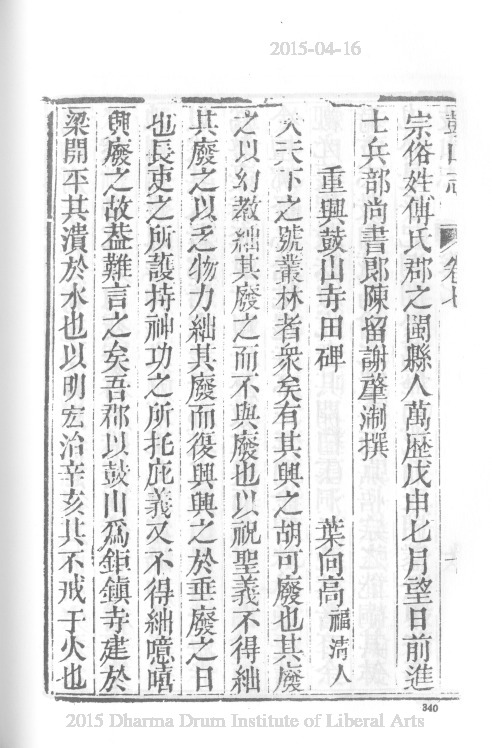 2015-04-16
鼓山志 卷七
宗俗姓傅氏郡之閩縣人萬歷戊申七月望日前進
士兵部尚書郎陳留謝肇淛撰
重興鼓山寺田碑 葉向高 福清人
夫天下之號叢林者衆矣有其興之胡可廢也其廢
之以幻教絀其廢之而不與廢也以祝聖義不得絀
其廢之以乏物力絀其廢而復興興之於垂廢之日
也長吏之所護持神功之所托庇義又不得絀噫嘻
興廢之故葢難言之矣吾郡以鼓山爲鉅鎮寺建於
梁開平其潰於水也以明宏治辛亥其不戒于火也
340
2015 Dharma Drum Institute of Liberal Arts